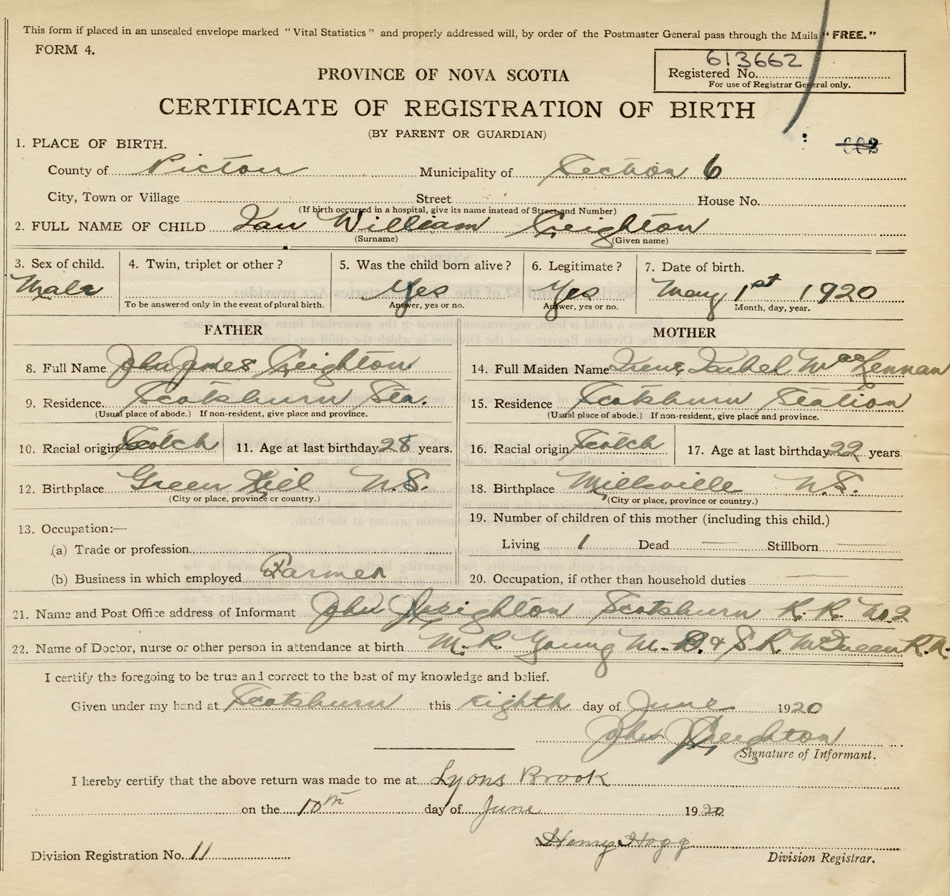 This form if placed in an unsealed envelope marked "Vital Statistics" and properly addressed will, by order of the Postmaster General pass through the Mails "FREE."
FORM 4.
613662
Registered No.
For use of Registrar General only.
PROVINCE OF NOVA SCOTIA
CERTIFICATE OF REGISTRATION OF BIRTH
(BY PARENT OR GUARDIAN)
1. PLACE OF BIRTH.
County of Pictou Municipality of Section 6
City, Town or Village Street House No.
(If birth occurred in a hospital, give its name instead of Street and Number)
2. FULL NAME OF CHILD Ian William Creighton
(Surname) (Given name)
3. Sex of child. 4. Twin, triplet or other? 5. Was the child born alive? 6. Legitimate? 7. Date of birth.
Male Yes Yes May 1st 1920
To be answered only in the event of plural birth. Answer, yes or no. Answer, yes or no. Month, day, year.
FATHER MOTHER
8. Full Name John James Creighton 14. Full Maiden Name Irene Isabel MacLennan
9. Residence. Scotsburn Sta. 15. Residence Scotsburn Station
(Usual place of abode.) If non-resident, give place and province. (Usual place of abode.) If non-resident, give place and province.
10. Racial origin Scotch 11. Age at last birthday 28 years. 16. Racial origin Scotch 17. Age at last birthday 22 years
12. Birthplace Green Hill N.S. 18. Birthplace Millsville N.S.
(City or place, province or country.) (City or place, province or country.)
13. Occupation:— 19. Number of children of this mother (including this child.)
(a) Trade or profession Living 1 Dead — Stillborn —
(b) Business in which employed Farmer 20. Occupation, if other than household duties —
21. Name and Post Office address of Informant John J Creighton Scotsburn R.R. No 2
22. Name of Doctor, nurse or other person in attendance at birth M.R. Young M.D. & S.R. R.N.
I certify the foregoing to be true and correct to the best of my knowledge and belief.
Given under my hand at Scotsburn this eighth day of June 1920
John J Creighton
Signature of Informant.
I hereby certify that the above return was made to me at Lyons Brook
on the 10th day of June 1920
Henry Hogg
Division Registration No. 11 Division Registrar.